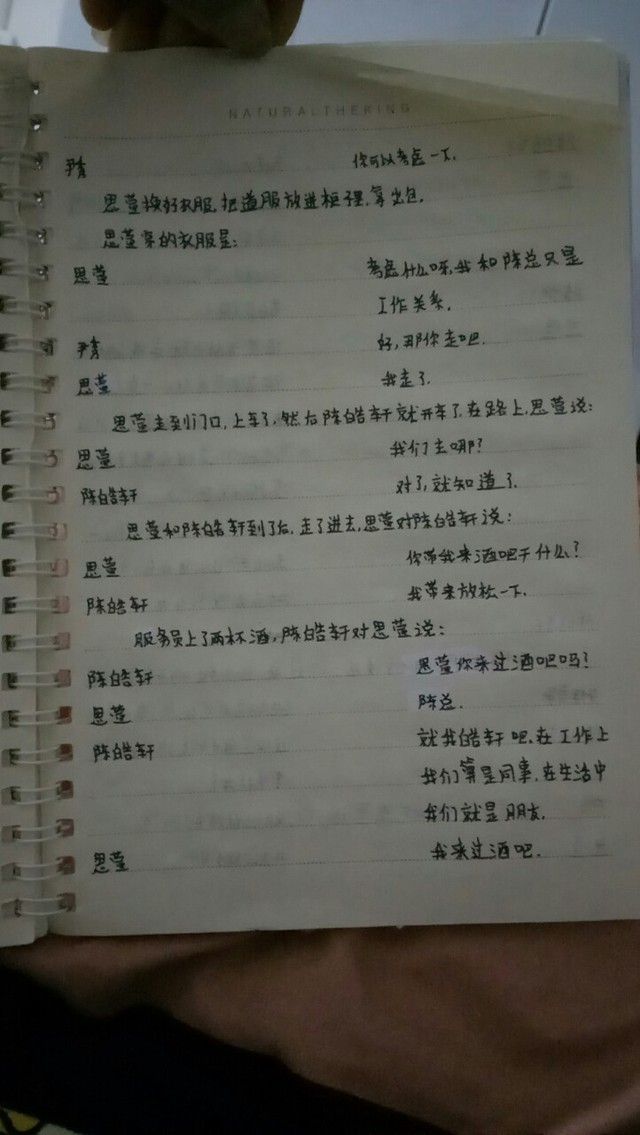 NATURALTHEKING
尹青 你可以考虑一下.
思萱换好衣服,把道服放进柜子里,拿出包.
思萱穿的衣服是:
思萱 考虑什么呀,我和陈总只是
工作关系.
尹青 好,那你走吧.
思萱 我走了.
思萱走到门口,上车了,然后陈皓轩就开车了,在路上,思萱说:
思萱 我们去哪?
陈皓轩 对了,就知道了.
思萱和陈皓轩到了后,走了进去,思萱对陈皓轩说:
思萱 你带我来酒吧干什么?
陈皓轩 我带来放松一下.
服务员上了两杯酒,陈皓轩对思萱说:
陈皓轩 思萱你来过酒吧吗?
思萱 陈总.
陈皓轩 就我皓轩吧,在工作上
我们算是同事,在生活中
我们就是朋友.
思萱 我来过酒吧.